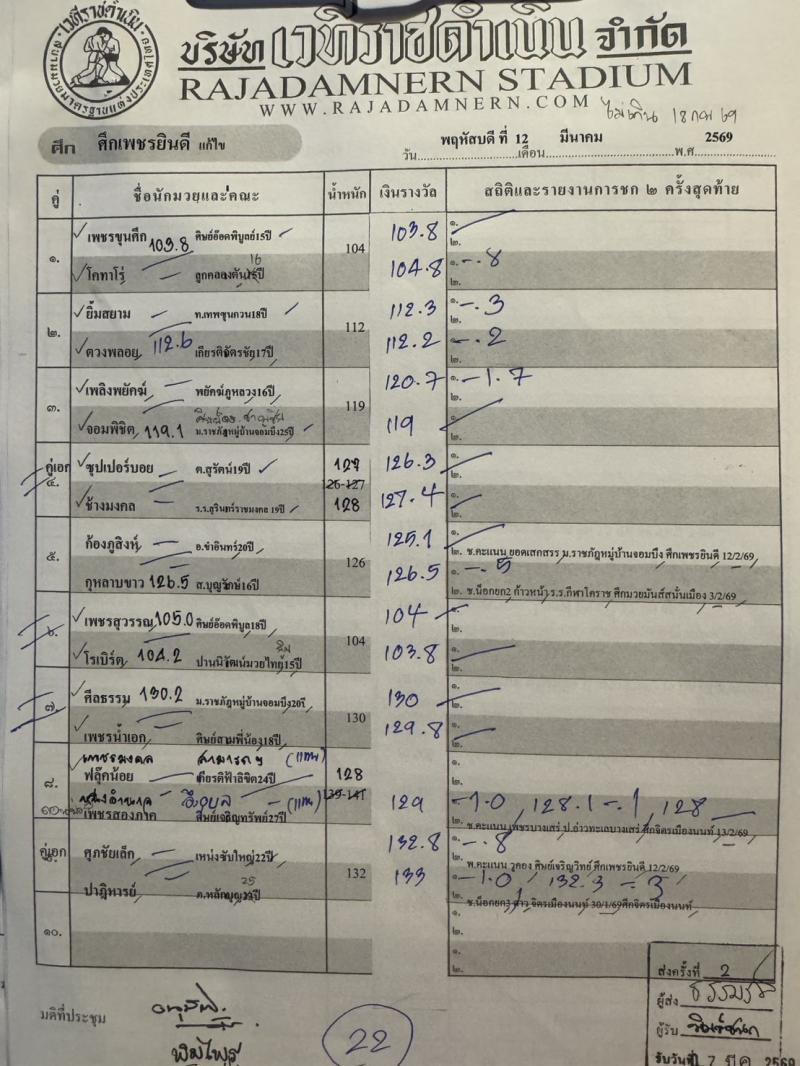 เวทีราชดำเนิน
บริษัท เวทีราชดำเนิน จำกัด
RAJADAMNERN STADIUM
WWW.RAJADAMNERN.COM
ไม่เกิน 18 กพ 69
ศึก ศึกเพชรยินดี แก้ไข
วัน พฤหัสบดี ที่ 12 เดือน มีนาคม พ.ศ. 2569
คู่ ชื่อนักมวยและคณะ น้ำหนัก เงินรางวัล สถิติและรายงานการชก ๒ ครั้งสุดท้าย
๑. เพชรขุนศึก 103.8 ศิษย์อ๊อดพิบูลย์15ปี 104 103.8 ๑.
๒.
โคทาโร่ ลูกคลองตัน 16 ปี 104.8 ๑. -.8
๒.
๒. ยิ้มสยาม ท.เทพซุนกวน18ปี 112 112.3 ๑. -.3
๒.
ดวงพลอย 112.6 เกียรติฉัตรชัย17ปี 112.2 ๑. -.2
๒.
๓. เพลิงพยัคฆ์ พยัคฆ์ภูหลวง16ปี 119 120.7 ๑. -1.7
๒.
จอมพิชิต 119.1 ม.ราชภัฎหมู่บ้านจอมบึง25ปี 119 ๑.
๒.
คู่เอก ๔. ซุปเปอร์บอย ต.สุรัตน์19ปี 127 126.3 ๑.
126-127
ช้างมงคล ร.ร.สุรินทร์ราชมงคล 19ปี 128 127.4 ๑.
๒.
๕. ก้องภูสิงห์ อ.ขำอินทร์20ปี 126 125.1 ๑.
๒. ช.คะแนน ยอดเสกสรร ม.ราชภัฎหมู่บ้านจอมบึง ศึกเพชรยินดี 12/2/69
กุหลาบขาว 126.5 ส.บุญรักษ์16ปี 126.5 ๑. -.5
๒. ช.น็อกยก2 ก้าวหน้า ร.ร.กีฬาโคราช ศึกมวยมันส์สนั่นเมือง 3/2/69
๖. เพชรสุวรรณ 105.0 ศิษย์อ๊อดพิบูล18ปี 104 104 ๑.
๒.
โรเบิร์ต 104.2 ปานนิวัฒน์มวยไทย15ปี 103.8 ๑.
๒.
๗. ศีลธรรม 130.2 ม.ราชภัฎหมู่บ้านจอมบึง20ปี 130 130 ๑.
เพชรน้ำเอก ศิษย์สามพี่น้อง18ปี 129.8 ๑.
๒.
เพชรมงคล (แทน)
๘. ฟลุ๊คน้อย เกียรติฟ้าลิขิต24ปี 128
(แทน) 139-141 129 -1.0, 128.1 -.1, 128
เพชรสองภาค ศิษย์เจริญทรัพย์27ปี ๒. ช.คะแนน เพชรบางเสร่ ป.อ่าวทะเลบางเสร่ ศึกจิตรเมืองนนท์ 13/2/69
คู่เอก ศุภชัยเล็ก เหน่งซับใหญ่22ปี 132 132.8 ๑. -.8
พ.คะแนน วูคอง ศิษย์เจริญวิทย์ ศึกเพชรยินดี 12/2/69
ปาฏิหารย์ ต.หลักบุญ 25 ปี 133 ๑. -1.0, 132.3 -.3
๒. ช.น็อกยก3 ดาว จิตรเมืองนนท์ 30/1/69ศึกจิตรเมืองนนท์
๑๐. ๑.
๒.
๑.
๒.
มติที่ประชุม
22
ส่งครั้งที่ 2
ผู้ส่ง
ผู้รับ
รับวันที่ 7 มีค 2569